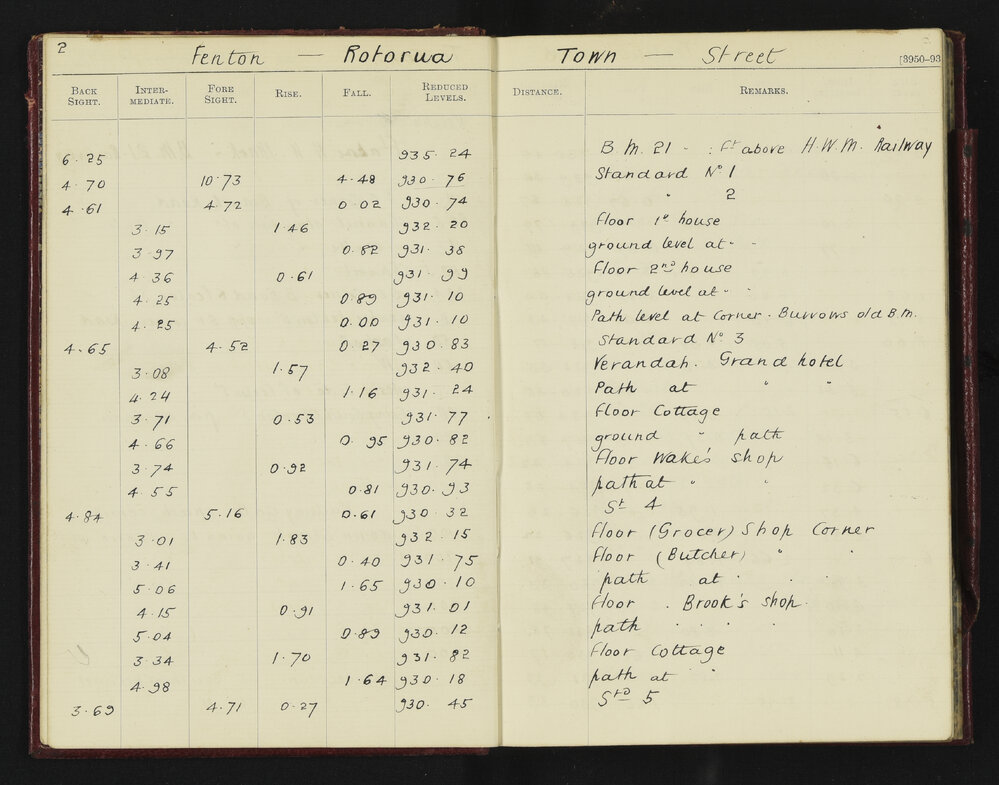 2
Fenton — Rotorua Town — Street
[3950–93
BACK SIGHT. INTER-MEDIATE. FORE SIGHT. RISE. FALL. REDUCED LEVELS. DISTANCE. REMARKS.
6.25 935.24 B.M. 21 - : Ft above H.W.M. Railway
4.70 10.73 4.48 930.76 Standard No 1
4.61 4.72 0.02 930.74 " 2
3.15 1.46 932.20 Floor 1st house
3.97 0.82 931.38 ground level at " "
4.36 0.61 931.99 Floor 2nd house
4.25 0.89 931.10 ground level at " "
4.25 0.00 931.10 Path level at Corner. Burrows old B.M.
4.65 4.52 0.27 930.83 Standard No 3
3.08 1.57 932.40 Verandah. Grand hotel
4.24 1.16 931.24 Path at " "
3.71 0.53 931.77 Floor Cottage
4.66 0.95 930.82 ground " path
3.74 0.92 931.74 Floor Wake's shop
4.55 0.81 930.93 path at " "
4.84 5.16 0.61 930.32 St 4
3.01 1.83 932.15 Floor (Grocer) Shop Corner
3.41 0.40 931.75 Floor (Butcher) " "
5.06 1.65 930.10 path at " "
4.15 0.91 931.01 Floor . Brook's shop.
5.04 0.89 930.12 path " " " "
3.34 1.70 931.82 Floor Cottage
4.98 1.64 930.18 path at "
3.69 4.71 0.27 930.45 Std 5